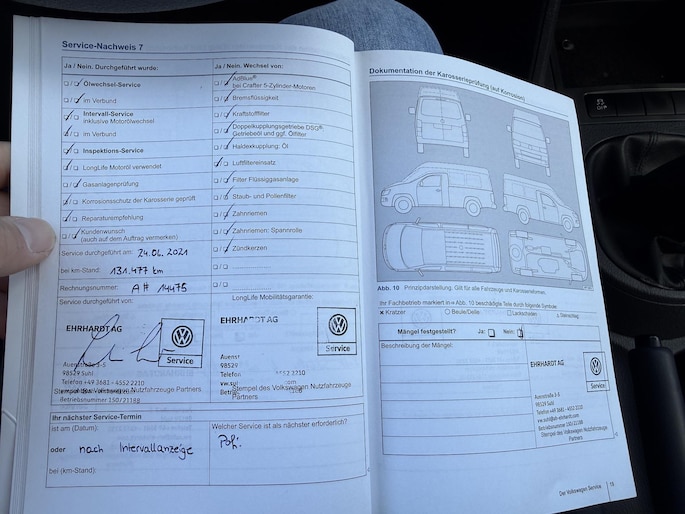 Service-Nachweis 7
Ja / Nein. Durchgeführt wurde:
Ölwechsel-Service
im Verbund
Intervall-Service
inklusive Motorölwechsel
im Verbund
Inspektions-Service
LongLife Motoröl verwendet
Gasanlagenprüfung
Korrosionsschutz der Karosserie geprüft
Reparaturempfehlung
Kundenwunsch
(auch auf dem Auftrag vermerken)
Service durchgeführt am: 24.06.2021
bei km-Stand: 131.477 km
Rechnungsnummer: A# 14475
Service durchgeführt von:
EHRHARDT AG
Service
Auenstraße 3-5
98529 Suhl
Telefon +49 3681 - 4552 2210
Stempel des Volkswagen Nutzfahrzeuge
Partners
Betriebsnummer 150/21188
Ja / Nein. Wechsel von:
AdBlue®
bei Crafter 5-Zylinder-Motoren
Bremsflüssigkeit
Kraftstofffilter
Doppelkupplungsgetriebe DSG®,
Getriebeöl und ggf. Ölfilter
Haldexkupplung: Öl
Luftfiltereinsatz
Filter Flüssiggasanlage
Staub- und Pollenfilter
Zahnriemen
Zahnriemen: Spannrolle
Zündkerzen
LongLife Mobilitätsgarantie:
EHRHARDT AG
Service
Auenst
98529
Telefon 4552 2210
vw.suhl
Stempel des Volkswagen Nutzfahrzeuge
Partners
Ihr nächster Service-Termin
ist am (Datum):
oder nach Intervallanzeige
bei (km-Stand):
Welcher Service ist als nächster erforderlich?
Dokumentation der Karosserieprüfung (auf Korrosion)
Abb. 10 Prinzipdarstellung. Gilt für alle Fahrzeuge und Karosserieformen.
Ihr Fachbetrieb markiert in ⇒ Abb. 10 beschädigte Teile durch folgende Symbole:
× Kratzer ○ Beule/Delle □ Lackschaden ◇ Steinschlag
Mängel festgestellt? Ja: Nein:
Beschreibung der Mängel:
EHRHARDT AG
Service
Auenstraße 3-5
98529 Suhl
Telefon +49 3681 - 4552 2210
vw.suhl@ah-ehrhardt.com
Betriebsnummer 150/21188
Stempel des Volkswagen Nutzfahrzeuge
Partners
Der Volkswagen Service
OFF